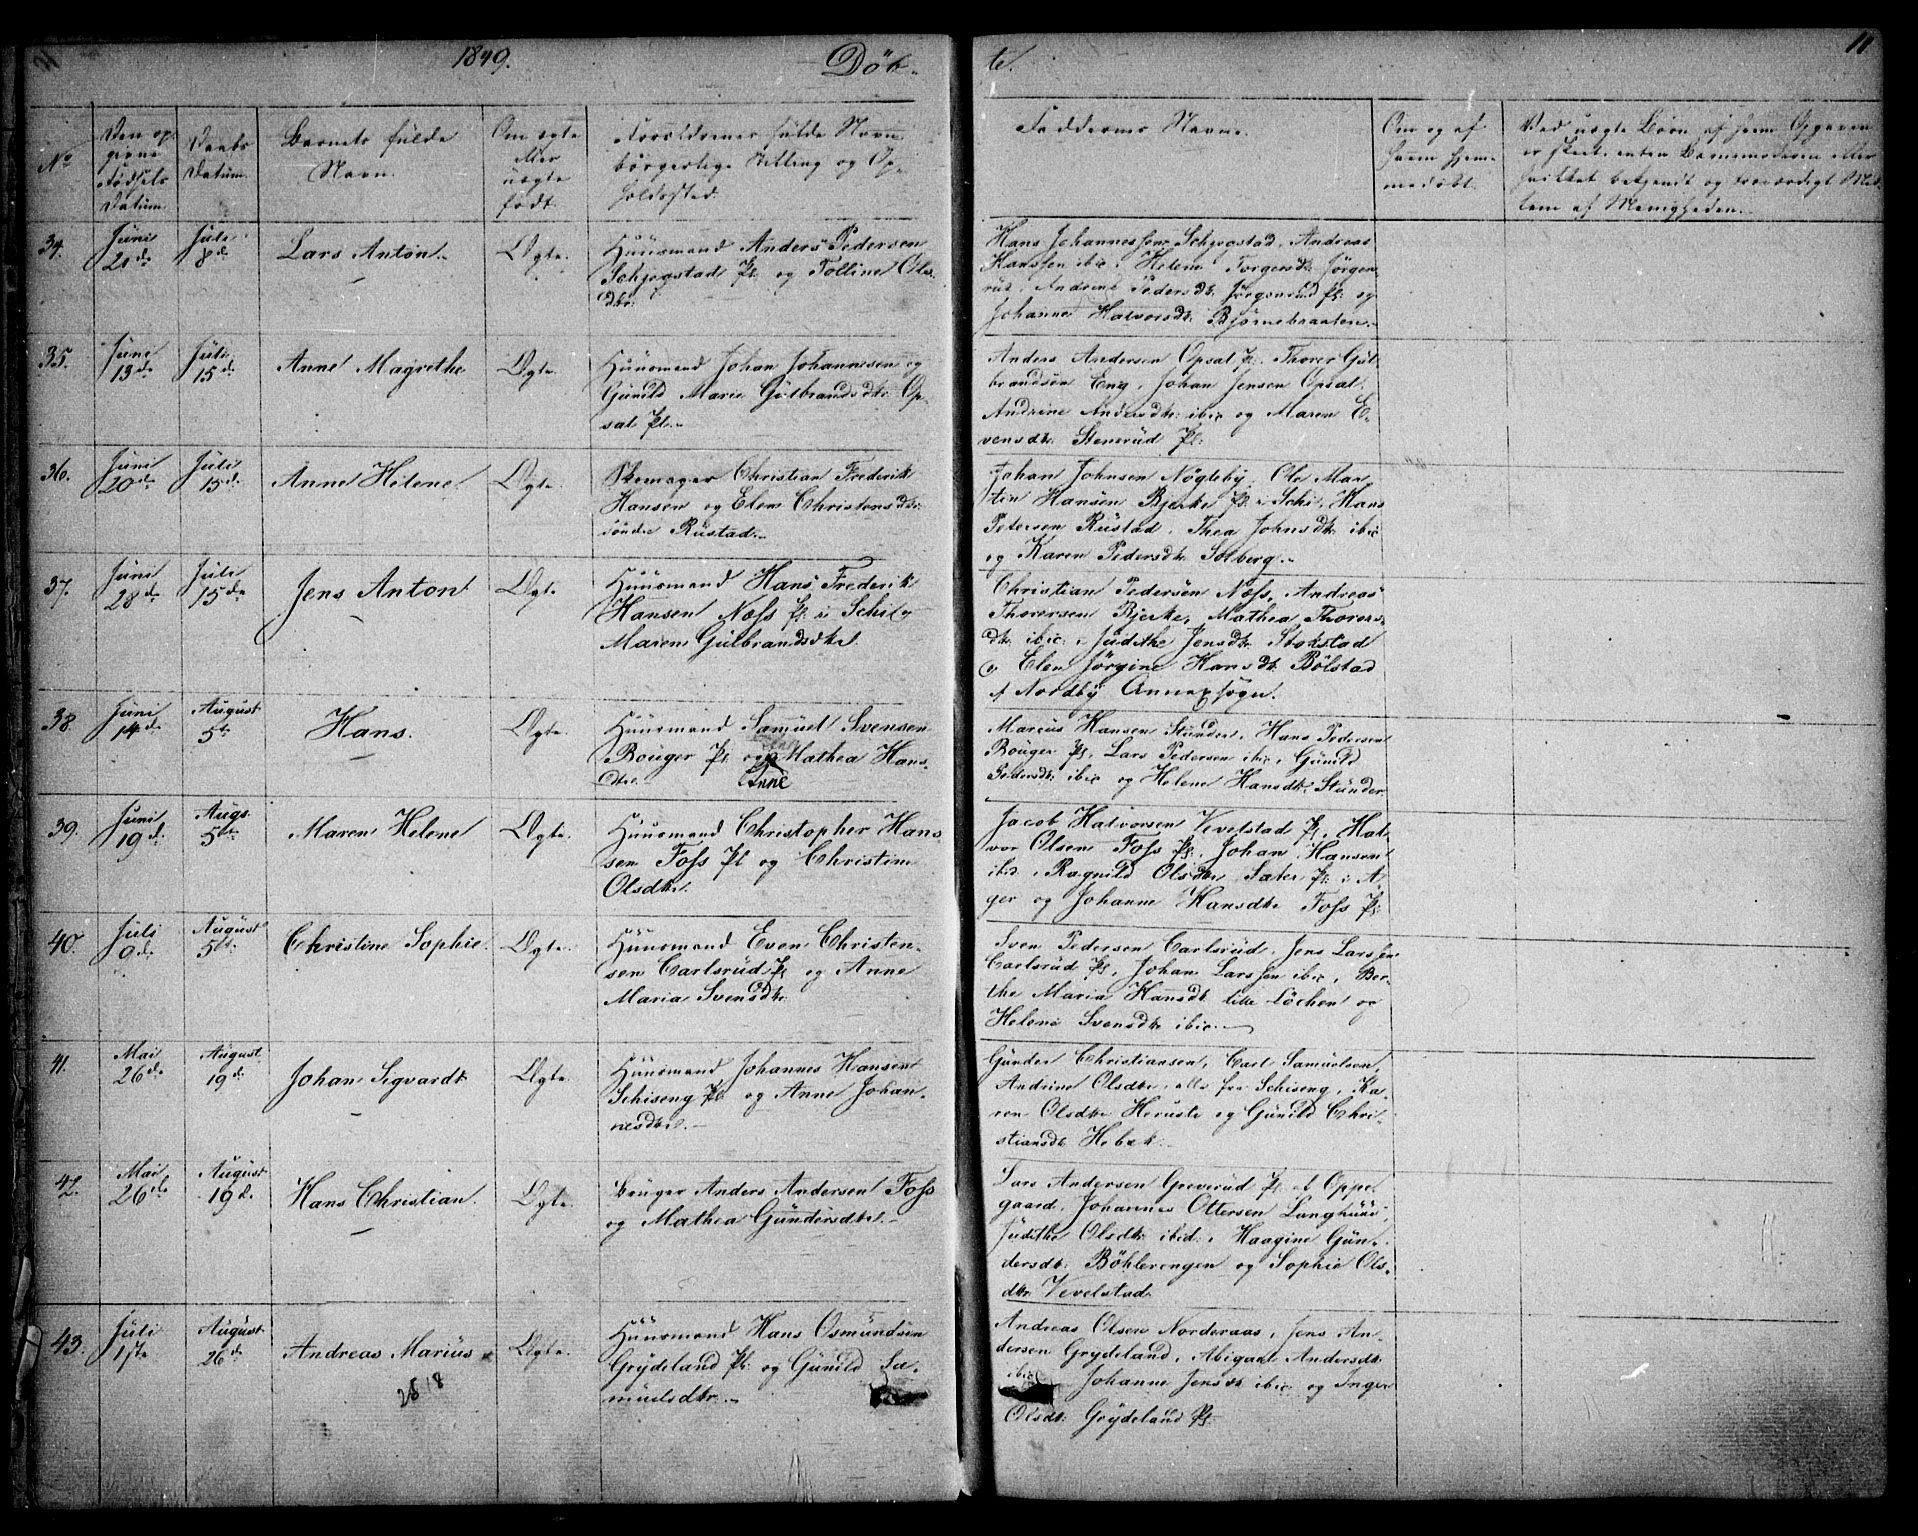 1849.
Döb-
te.
11
No
Den op-
givne
Födsels
Datum.
Daabs
Datum.
Barnets fulde
Navn.
Om ægte
eller
uægte
født.
Forældrenes fulde Navn
borgerlige Stilling og Op-
holdssted.
Faddernes Navne.
Om og af
hvem hjem-
medöbt.
Ved uægte Børn, af hvem Opgaven
er skeet, enten Barnemoderen eller
hvilket bekjendt og troværdigt Med-
lem af Menigheden.
34.
Juni
21de
Juli
8de
Lars Anton.
Ægte.
Huusmand Anders Pedersen
Schjegstad Pl. ogOlline Ols-
dtr.
Hans Johannessen Schjegstad, Andreas
Hanssen ibid, Helene Torgersdtr. Jörgen-
rud, Andrine Pedersdtr. Jörgenrud Pl. og
Johanne Halvorsdtr. Bjørnebraaten.
35.
Juni
13de
Juli
15de
Anne Magrethe
Ægte.
Huusmand Johan Johannesen og
Gunild Marie Gulbrandsdtr. Op-
sal Pl.
Anders Andersen Opsal Pl. Thorer Gul-
brandsen Eng, Johan Jensen Opsal,
Andrine Andersdtr. ibid og Maren E-
vensdtr. Stenerud Pl.
36.
Juni
20de
Juli
15de
Anne Helene
Ægte.
Skomager Christian Frederik
Hansen og Elen Christensdtr.
söndre Rustad.
Johan Johnsen Nögleby, Ole Mar-
tin Hansen Bjerke Pl. i Schi, Hans
Petersen Rustad, Thea Johnsdtr. ibid
og Karen Pedersdtr. Solberg.
37.
Juni
28de
Juli
15de
Jens Anton
Ægte.
Huusmand Hans Frederik
Hansen Næss Pl. i Schi og
Maren Gulbrandsdtr.
Christian Pedersen Næss, Andreas
Thorersen Bjerke, Mathea Thorers-
dtr. ibid, Judithe Jensdtr. Stokstad
og Elen Jörgine Hansdtr. Bölstad
af Nordby Annexsogn.
38.
Juni
14de
August
5te
Hans.
Ægte.
Huusmand Samuel Svensen
Bouger Pl. og Mathea Hans-
dtr. Anne
Marcus Hansen Stunder, Hans Pedersen
Bouger Pl. Lars Pedersen ibid, Gunild
Pedersdtr. ibid og Helene Hansdtr. Stunder
39.
Juni
19de
Augs.
5te
Maren Helene
Ægte.
Huusmand Christopher Han-
sen Foss Pl. og Christine
Olsdtr.
Jacob Halvorsen Vevelstad Pl. Hal-
vor Olsen Foss Pl. Johan Hansen
ibid, Ragnild Olsdtr. Sæter Pl. i A-
ger og Johanne Hansdtr. Foss Pl.
40.
Juli
9de
August
5te
Christine Sophie.
Ægte.
Huusmand Even Christen-
sen Carlsrud Pl. og Anne
Maria Svensdtr.
Sven Pedersen Carlsrud, Jens Larssen
Carlsrud Pl. Johan Larssen ibid, Ber-
the Maria Hansdtr. lille Löchen og
Helene Svensdtr. ibid.
41.
Mai
26de
August
19de
Johan Sigvardt
Ægte.
Huusmand Johannes Hansen
Schiseng Pl. og Anne Johan-
nesdtr.
Gunder Christiansen, Carl Samuelsen,
Andrine Olsdtr. alle fra Schiseng, Ka-
ren Olsdtr. Heruste og Gunild Chri-
stiansdtr. Hebæk.
42.
Mai
26de
August
19de
Hans Christian.
Ægte.
Bruger Anders Andersen Foss
og Mathea Gundersdtr.
Lars Andersen Greverud Pl. af Oppe-
gaard, Johannes Ottersen Langhuus,
Judithe Olsdtr. ibid, Haagine Gun-
dersdtr. Böhlerengen og Sophie Ols-
dtr. Vevelstad
43.
Juli
1ste
August
26de
Andreas Marius
2818
Ægte.
Huusmand Hans Osmundsen
Grydeland Pl. og Gunild Sa-
muelsdtr.
Andreas Olsen Norderaas, Jens An-
dersen Grydeland, Abigael Andersdtr.
ibid Johanne Jensdtr. ibid og Inger
Olsdtr. Grydeland Pl.